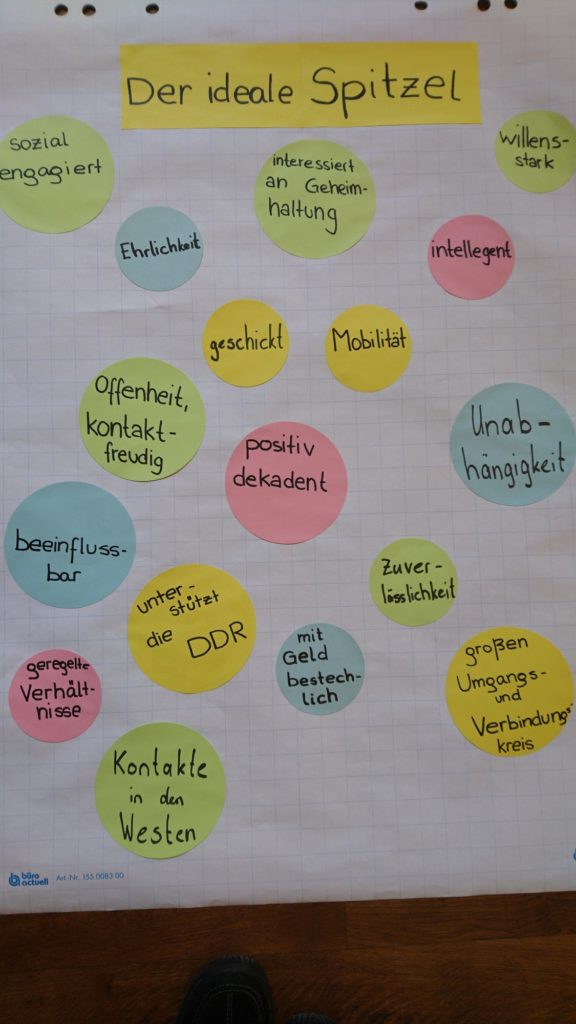 Der ideale Spitzel
sozial
engagiert
interessiert
an Geheim-
haltung
willens-
stark
Ehrlichkeit
intellegent
geschickt
Mobilität
Offenheit,
kontakt-
freudig
positiv
dekadent
Unab-
hängigkeit
beeinfluss-
bar
unter-
stützt
die DDR
Zuver-
lässlichkeit
geregelte
Verhält-
nisse
mit
Geld
bestech-
lich
großen
Umgangs-
und
Verbindungs-
kreis
Kontakte
in den
Westen
büro
actuell
Art.-Nr. 155 0083 00